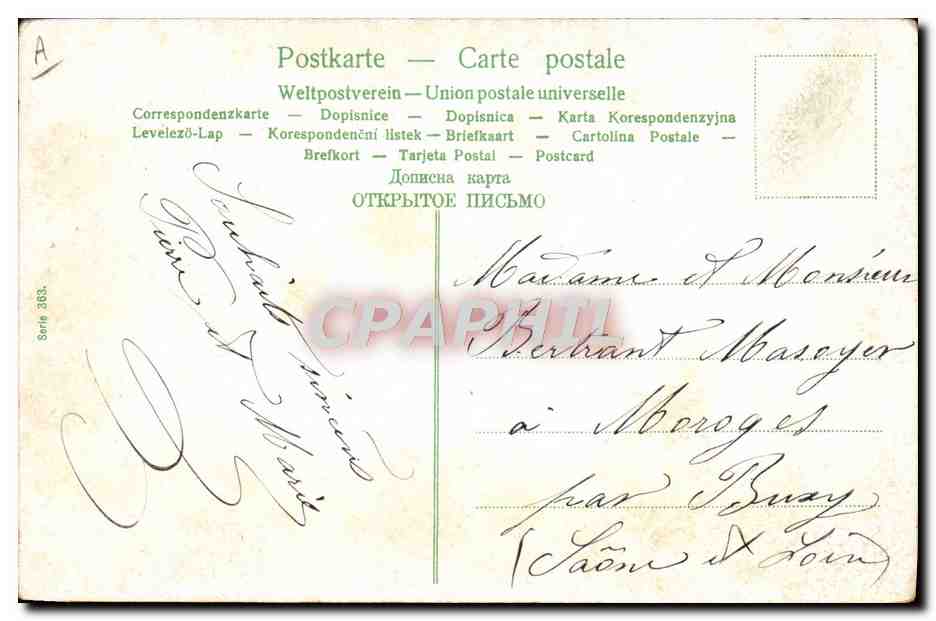 A
Postkarte — Carte postale
Weltpostverein — Union postale universelle
Correspondenzkarte — Dopisnice — Dopisnica — Karta Korespondenzyjna
Levelező-Lap — Korespondenční lístek — Briefkaart — Cartolina Postale —
Brefkort — Tarjeta Postal — Postcard
Дописна карта
ОТКРЫТОЕ ПИСЬМО
Serie 363.
Souhaits sincères
Pierre et Marie
CPAPHIL
Madame et Monsieur
Bertrant Masoyer
à Moroges
par Buxy
(Saône et Loire)